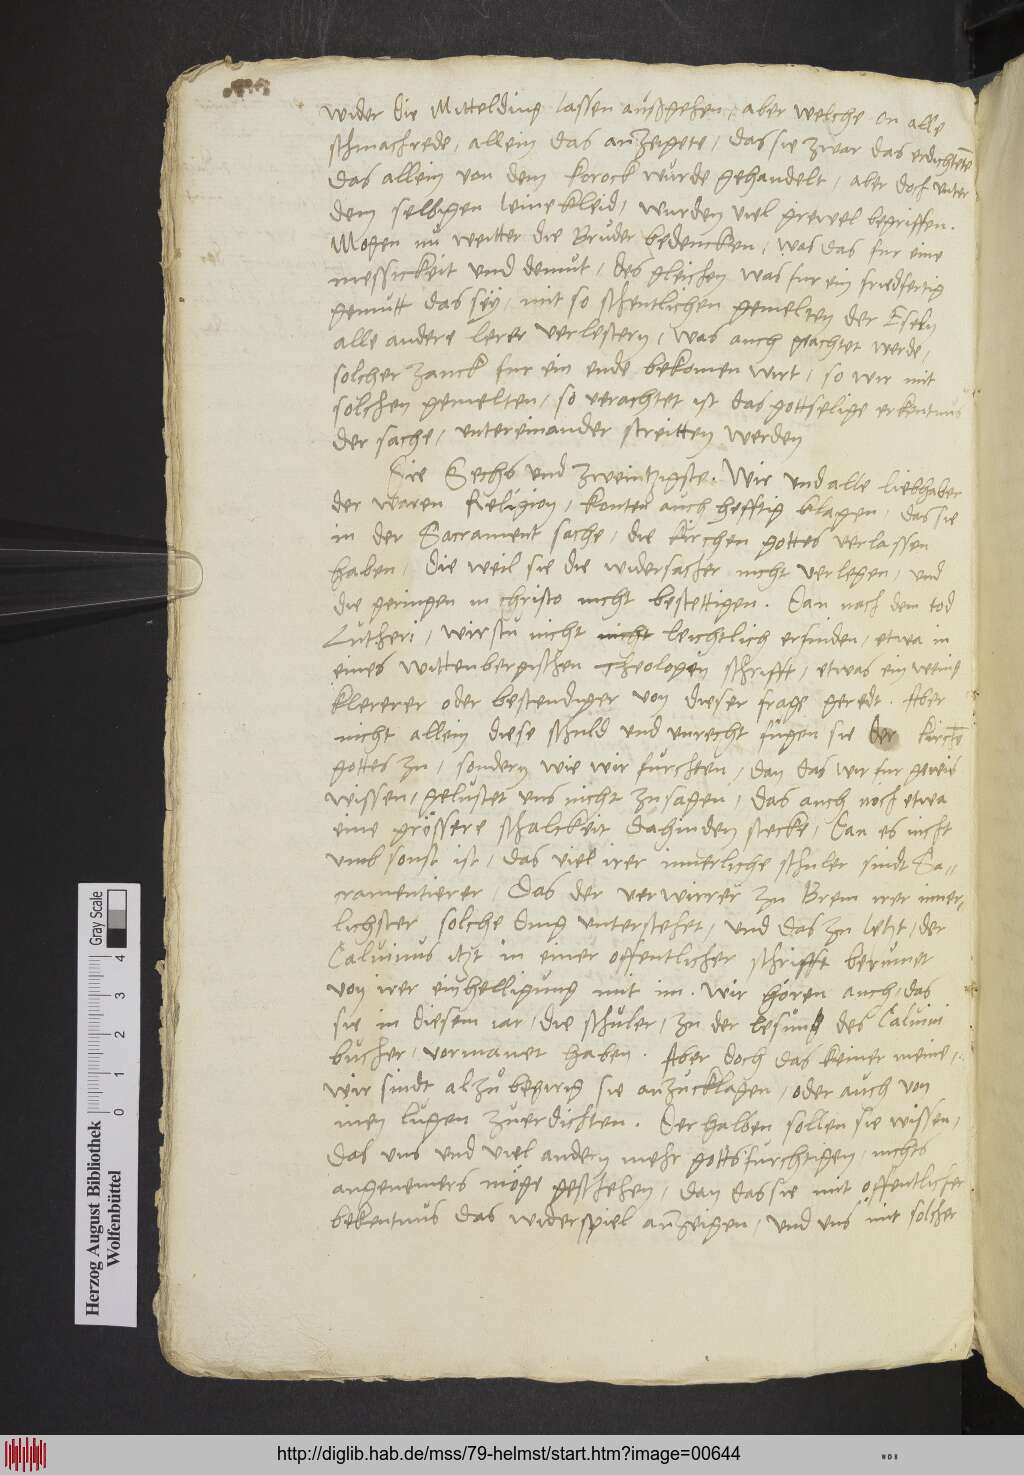 wider die Mittelding lassen außgehen, aber welche on alle
schmachrede, allein das anzeigete, das sie zwar das erdichtete
das allein von dem korock wurde gehandelt, aber doch unter
dem selbigen leinekleid, wurden viel grewel begriffen.
Mogen nu weitter die Bruder bedencken, was das fur eine
messickeit und demut, des gleichen was fur ein friedfertig
gemutt das sey, mit so schentlichen gemelten der Eseln
alle andere lerer verlestern, was auch geachtet werde,
solcher zanck fur ein ende bekomen wirt, so wir mit
solchen gemelten, so verachtet ist das gottselige erkentnus
der sache, untereinander streitten werden
Die Sechs und zweintzigste. Wir und alle liebhaber
der waren Religion, konten auch hefftig klagen, das sie
in der Sacrament sache, die kirchen gottes verlassen
haben, die weil sie die widersacher nicht verlegen, und
die geringen in christo nicht bestettigen. Dan nach dem tod
Lutheri, wirstu nicht nicht leichtlich erfinden, etwa in
eines wittenbergischen Theologen schrifft, etwas ein wenig
klererer oder bestendiger von dieser frage geredt. Aber
nicht allein diese schuld und unrecht fugen sie der kirche
gottes zu, sondern wie wir furchten, dan das wir fur gewis
wissen, gelustet uns nicht zusagen, das auch noch etwa
eine grössere schalckeit dahinden stecke, Dan es nicht
umb sonst ist, das viel irer innerliche schuler sindt Sa-
cramentierer, Das der verwirrer zu Brem irer inner-
lichster solche ding unterstehet, und das zu letzt, der
Calvinus itzt in einer offentlicher schrifft berumet
von irer einhelligung mit im. Wir hören auch, das
sie in diesem iar, die schuler, zu der lesung des Calvini
bucher, vormanet haben. Aber doch das keiner meine,
wir sindt alzu begirig sie anzucklagen, oder auch von
inen lugen zuerdichten. Der halben sollen sie wissen,
das uns und viel andern mehr gottsfurchtigen, nichts
angenemers möge geschehen, dan das sie mit offentlicher
bekentnus das widerspiel anzeigen, und uns mit solcher
Herzog August Bibliothek
Wolfenbüttel
0 1 2 3 4
Gray Scale
http://diglib.hab.de/mss/79-helmst/start.htm?image=00644
WDB